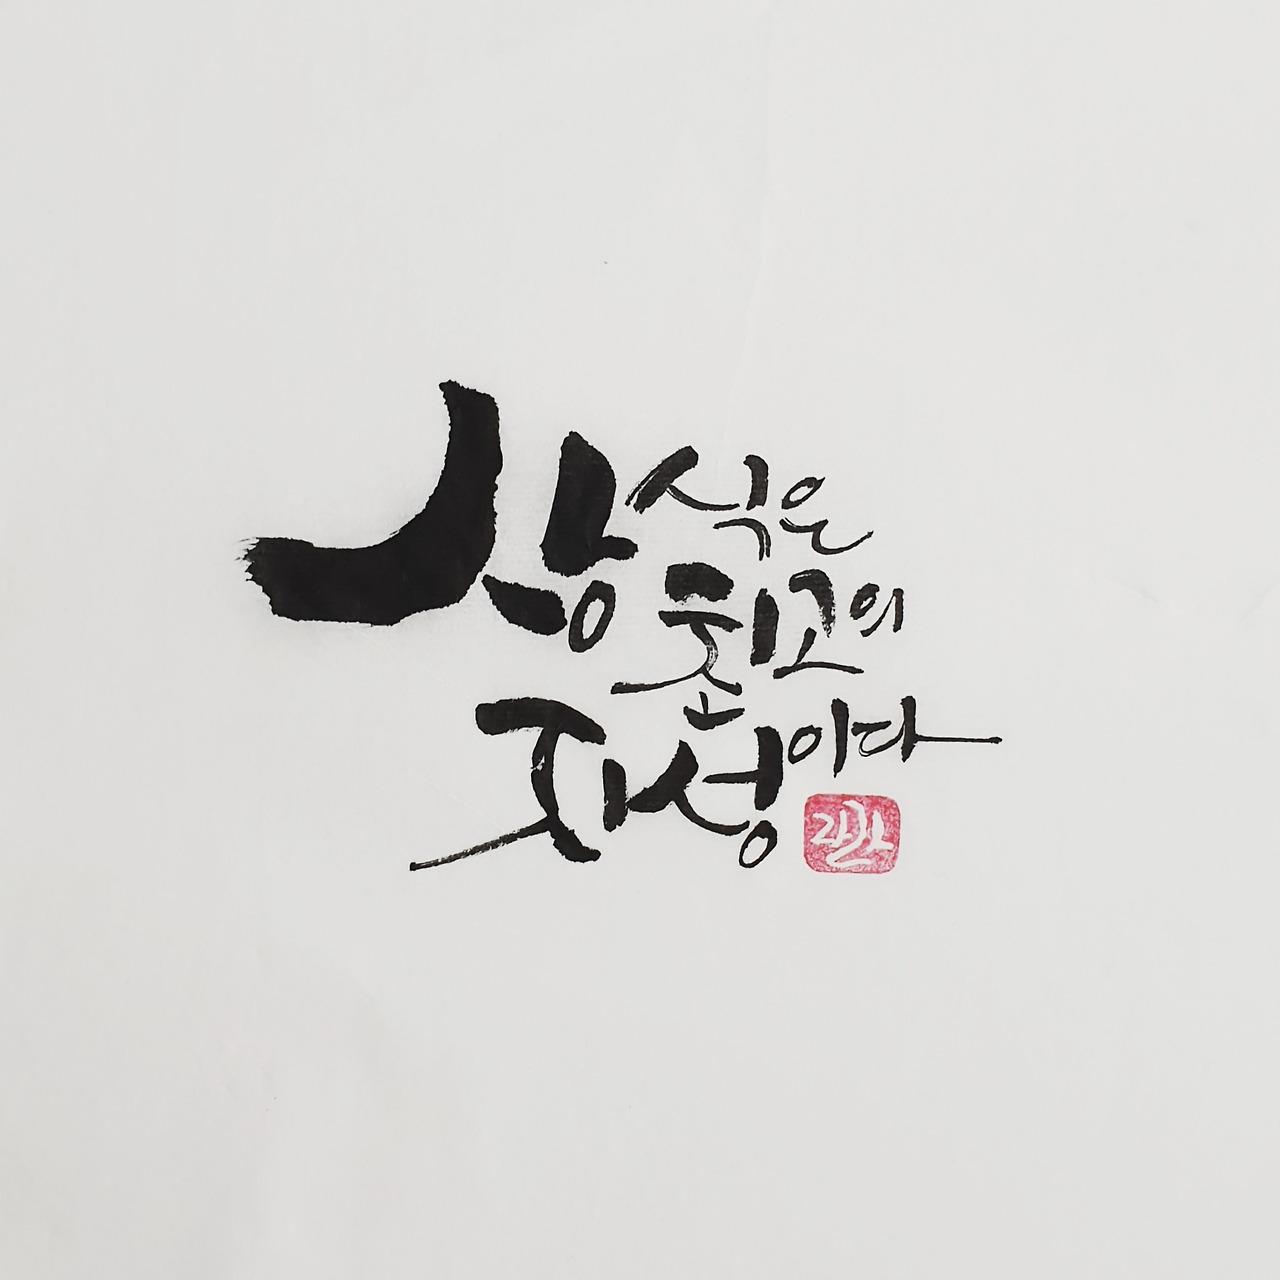 상식은
최고의
지성이다
라라